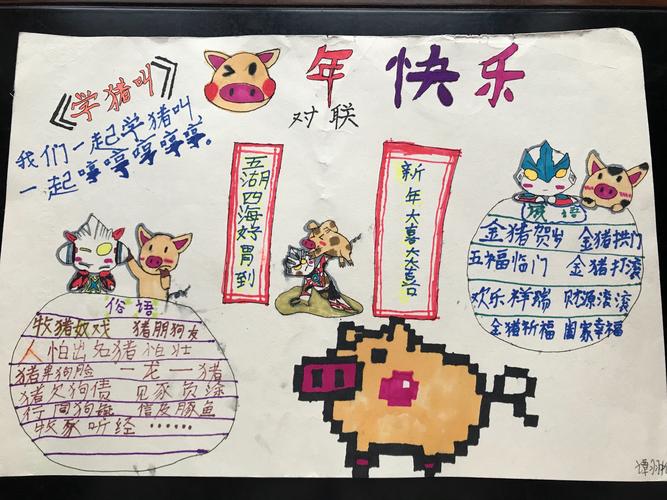 《学猪叫》
年 快 乐
对联
我们一起学猪叫,
一起哼哼哼哼哼.
五湖四海好胃到
新年大喜大喜
成语
金猪贺岁 金猪拱门
五福临门 金猪打滚
欢乐祥瑞 财源滚滚
金猪祈福 阖家幸福
俗语
牧猪奴戏 猪朋狗友
人怕出名猪怕壮
猪卑狗脸 一龙一猪
猪欠狗债 见豕负涂
行同狗彘 信及豚鱼
牧豕听经 ……